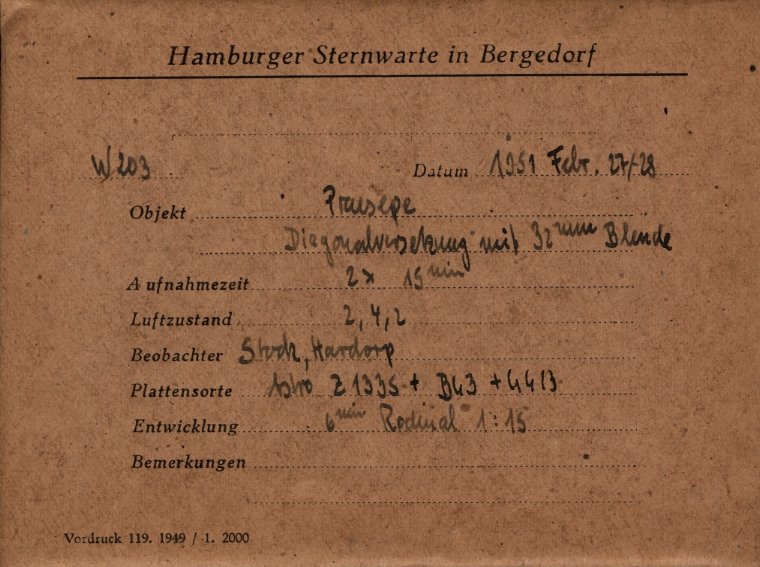 Hamburger Sternwarte in Bergedorf
W203 Datum 1951 Febr. 27/28
Objekt Praesepe
Diagonalversetzung mit 32mm Blende
Aufnahmezeit 2x 15min
Luftzustand 2, 4, 2
Beobachter Stock, Hardorp
Plattensorte Astro Z 1335 + B43 + G413
Entwicklung 6min Rodinal 1:15
Bemerkungen
Vordruck 119. 1949 / 1. 2000